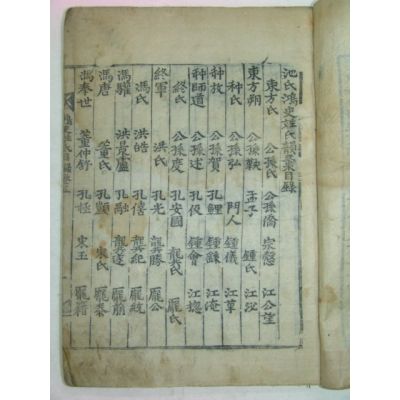 池氏鴻史姓氏韻彙目錄
東方氏 公孫氏 公孫僑 宗愨 江公望
東方朔 公孫 孟子 鍾氏 江泌
种氏 公孫弘 門人 鍾儀 江革
种放 公孫賀 孔鯉 鍾繇 江淹
种師道 公孫述 孔伋 鍾會 江摠
終氏 公孫度 孔安國 龔氏 龐氏
終軍 洪氏 孔光 龔勝 龐公
馮氏 洪皓 孔僖 龔 龐統
馮驩 洪景盧 孔融 龔遂 龐萠
馮唐 董氏 孔顗 宋氏 龐
馮奉世 董仲舒 孔 宋玉 龐籍
鴻史姓氏目錄